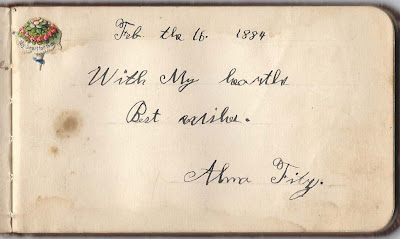 Feb. the 16. 1884
With My hearths
Best wishes.
Alma Fily.